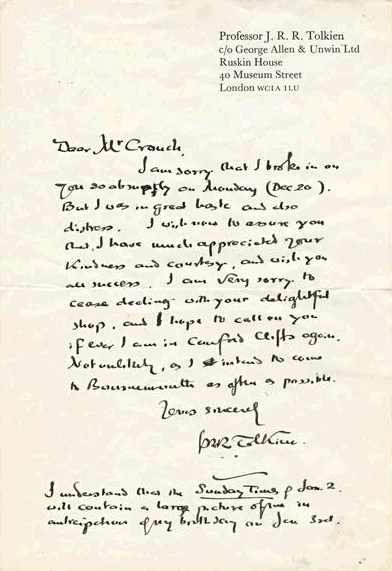 Professor J. R. R. Tolkien
c/o George Allen & Unwin Ltd
Ruskin House
40 Museum Street
London WC1A 1LU
Dear Mr Crouch,
I am sorry that I broke in on
you so abruptly on Monday (Dec 20).
But I was in great haste and also
distress. I wish now to assure you
that I have much appreciated your
kindness and courtesy, and wish you
all success. I am very sorry to
cease dealing with your delightful
shop, and I hope to call on you
if ever I am in Canford Cliffs again.
Not unlikely, as I intend to come
to Bournemouth as often as possible.
Yours sincerely
JRR Tolkien.
I understand that the Sunday Times of Jan. 2.
will contain a large picture of me in
anticipation of my birthday on Jan 3rd.